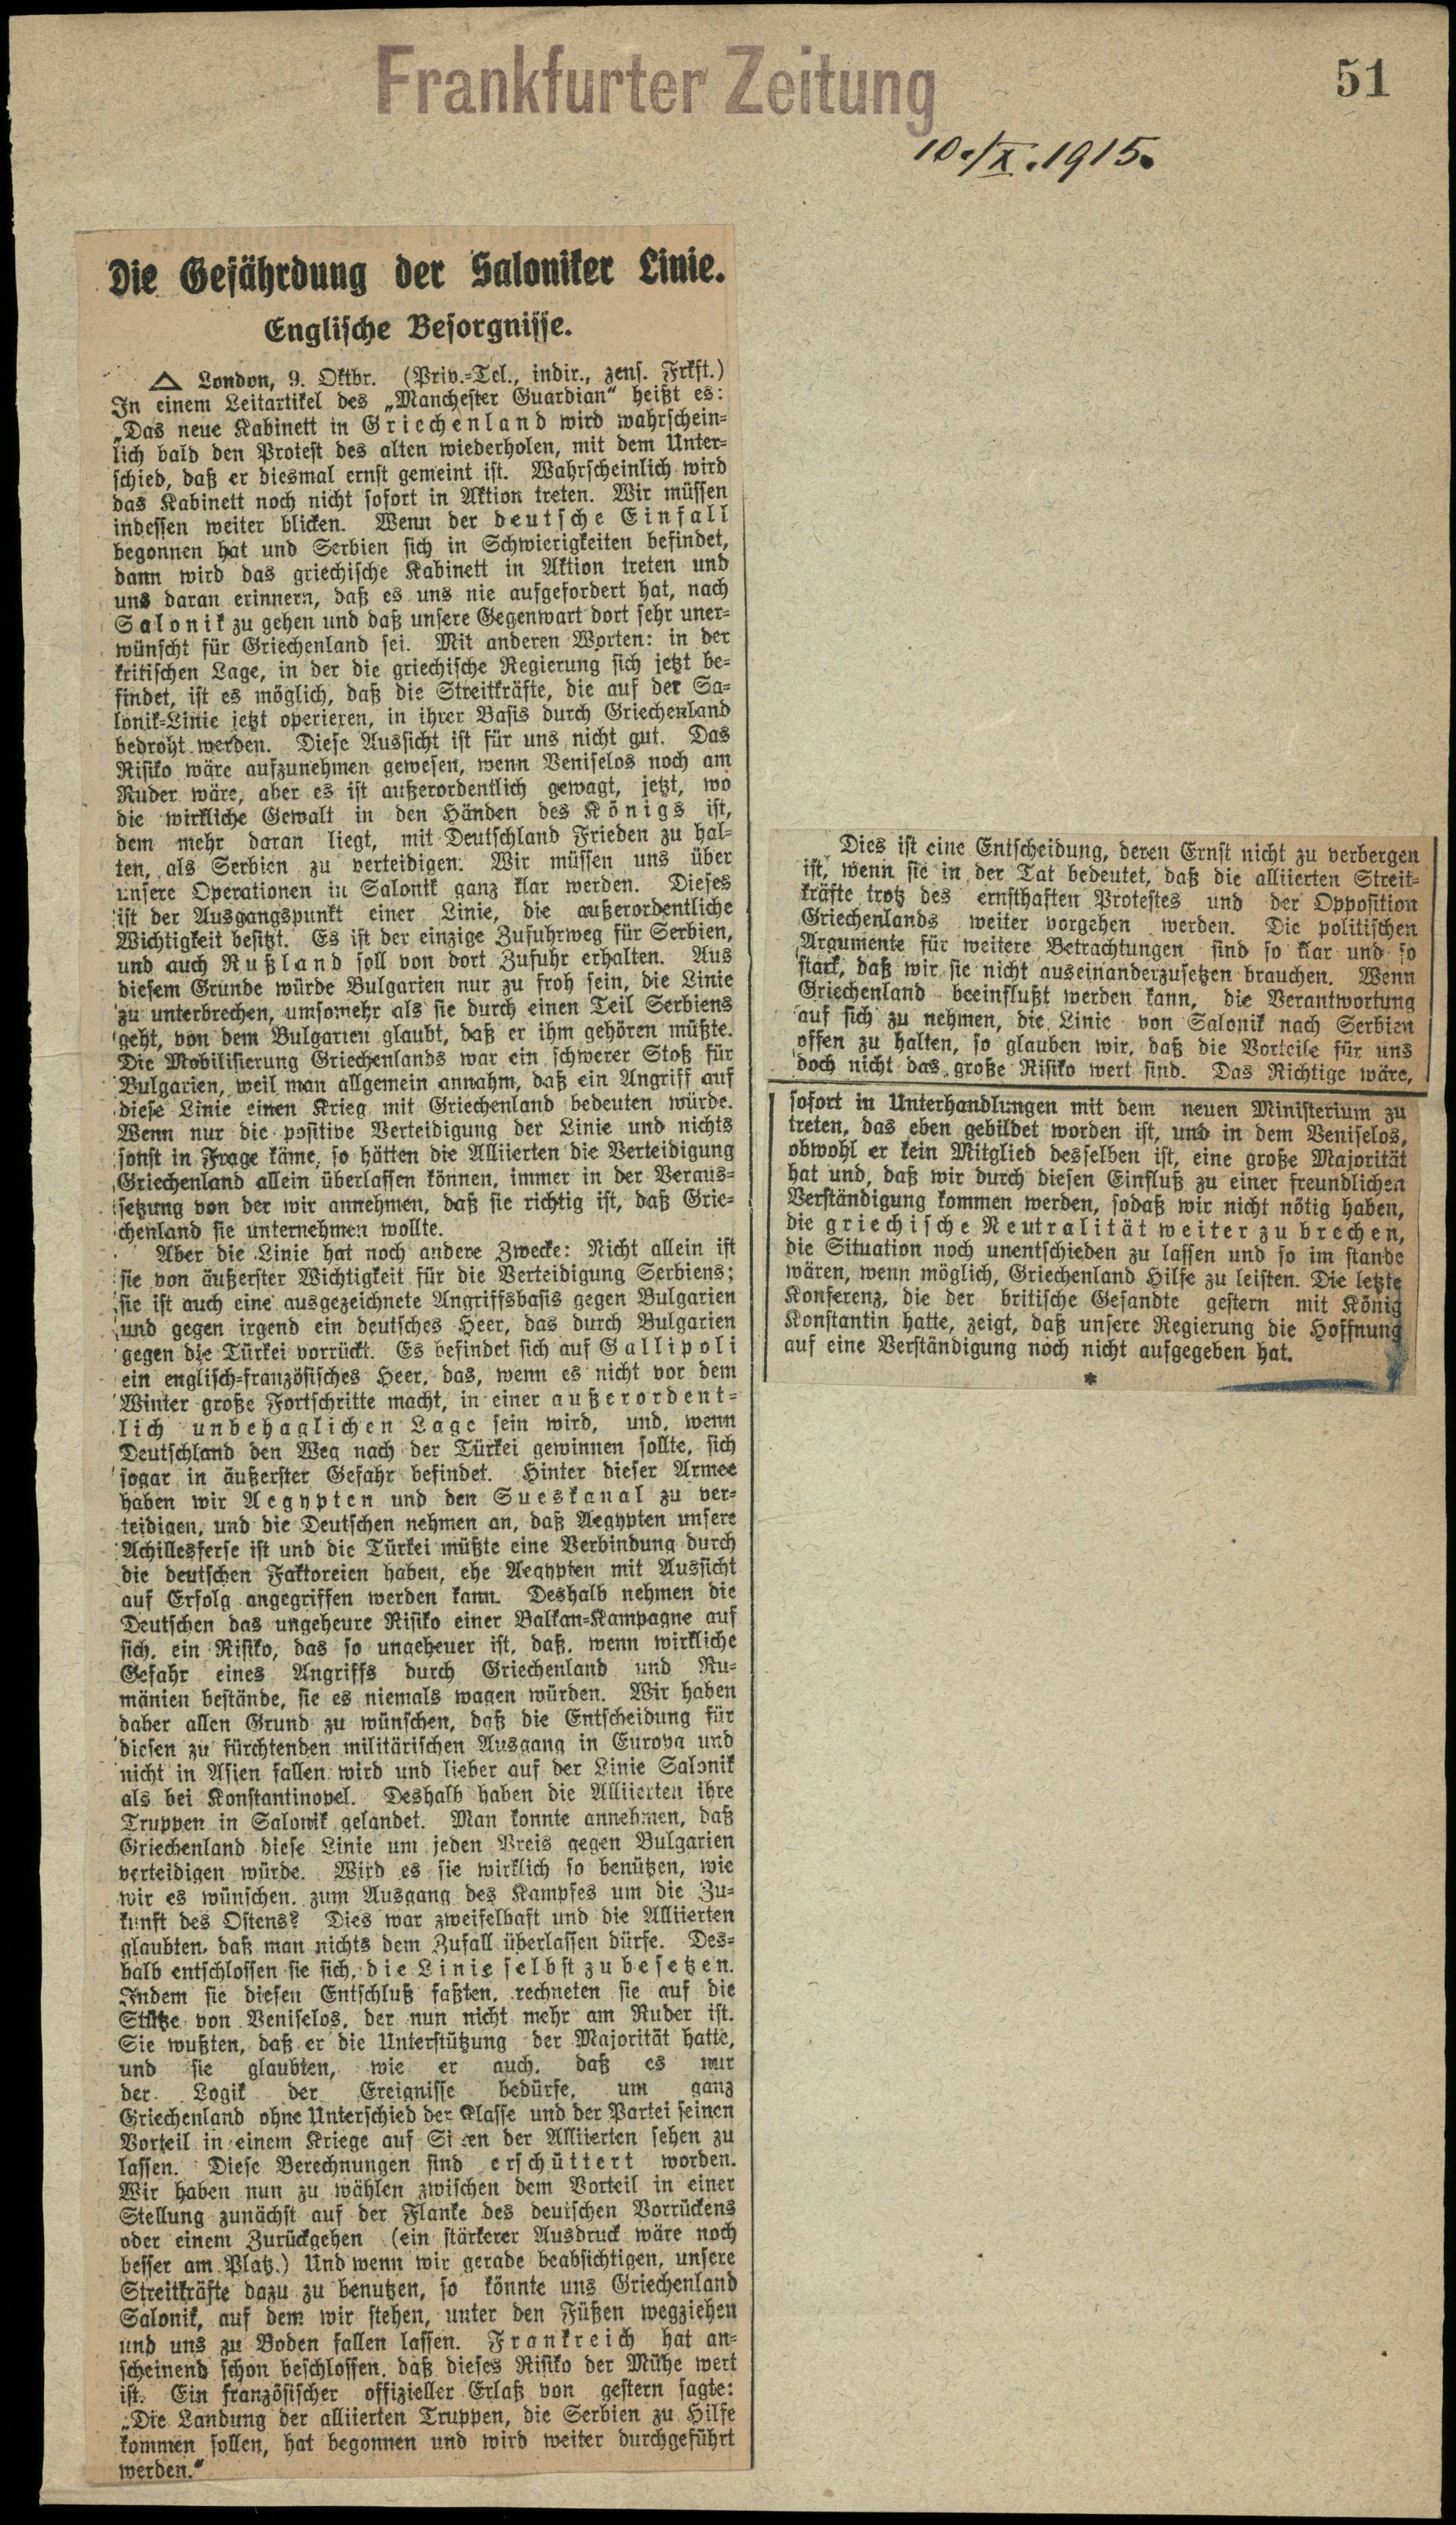 Frankfurter Zeitung
51
10./X.1915.
Die Gefährdung der Saloniker Linie.
Englische Besorgnisse.
△ London, 9. Oktbr. (Priv.-Tel., indir., zens. Frkft.)
In einem Leitartikel des „Manchester Guardian“ heißt es:
„Das neue Kabinett in Griechenland wird wahrschein-
lich bald den Protest des alten wiederholen, mit dem Unter-
schied, daß er diesmal ernst gemeint ist. Wahrscheinlich wird
das Kabinett noch nicht sofort in Aktion treten. Wir müssen
indessen weiter blicken. Wenn der deutsche Einfall
begonnen hat und Serbien sich in Schwierigkeiten befindet,
dann wird das griechische Kabinett in Aktion treten und
uns daran erinnern, daß es uns nie aufgefordert hat, nach
Salonik zu gehen und daß unsere Gegenwart dort sehr uner-
wünscht für Griechenland sei. Mit anderen Worten: in der
kritischen Lage, in der die griechische Regierung sich jetzt be-
findet, ist es möglich, daß die Streitkräfte, die auf der Sa-
lonik-Linie jetzt operieren, in ihrer Basis durch Griechenland
bedroht werden. Diese Aussicht ist für uns nicht gut. Das
Risiko wäre aufzunehmen gewesen, wenn Veniselos noch am
Ruder wäre, aber es ist außerordentlich gewagt, jetzt, wo
die wirkliche Gewalt in den Händen des Königs ist,
dem mehr daran liegt, mit Deutschland Frieden zu hal-
ten, als Serbien zu verteidigen. Wir müssen uns über
unsere Operationen in Salonik ganz klar werden. Dieses
ist der Ausgangspunkt einer Linie, die außerordentliche
Wichtigkeit besitzt. Es ist der einzige Zufuhrweg für Serbien,
und auch Rußland soll von dort Zufuhr erhalten. Aus
diesem Grunde würde Bulgarien nur zu froh sein, die Linie
zu unterbrechen, umsomehr als sie durch einen Teil Serbiens
geht, von dem Bulgarien glaubt, daß er ihm gehören müßte.
Die Mobilisierung Griechenlands war ein schwerer Stoß für
Bulgarien, weil man allgemein annahm, daß ein Angriff auf
diese Linie einen Krieg mit Griechenland bedeuten würde.
Wenn nur die positive Verteidigung der Linie und nichts
sonst in Frage käme, so hätten die Alliierten die Verteidigung
Griechenland allein überlassen können, immer in der Veraus-
setzung von der wir annehmen, daß sie richtig ist, daß Grie-
chenland sie unternehmen wollte.
Aber die Linie hat noch andere Zwecke: Nicht allein ist
sie von äußerster Wichtigkeit für die Verteidigung Serbiens;
sie ist auch eine ausgezeichnete Angriffsbasis gegen Bulgarien
und gegen irgend ein deutsches Heer, das durch Bulgarien
gegen die Türkei vorrückt. Es befindet sich auf Gallipoli
ein englisch-französisches Heer, das, wenn es nicht vor dem
Winter große Fortschritte macht, in einer außerordent-
lich unbehaglichen Lage sein wird, und, wenn
Deutschland den Weg nach der Türkei gewinnen sollte, sich
sogar in äußerster Gefahr befindet. Hinter dieser Armee
haben wir Aegypten und den Sueskanal zu ver-
teidigen, und die Deutschen nehmen an, daß Aegypten unsere
Achillesferse ist und die Türkei müßte eine Verbindung durch
die deutschen Faktoreien haben, ehe Aegypten mit Aussicht
auf Erfolg angegriffen werden kann. Deshalb nehmen die
Deutschen das ungeheure Risiko einer Balkan-Kampagne auf
sich, ein Risiko, das so ungeheuer ist, daß, wenn wirkliche
Gefahr eines Angriffs durch Griechenland und Ru-
mänien bestände, sie es niemals wagen würden. Wir haben
daher allen Grund zu wünschen, daß die Entscheidung für
diesen zu fürchtenden militärischen Ausgang in Europa und
nicht in Asien fallen wird und lieber auf der Linie Salonik
als bei Konstantinopel. Deshalb haben die Alliierten ihre
Truppen in Salonik gelandet. Man konnte annehmen, daß
Griechenland diese Linie um jeden Preis gegen Bulgarien
verteidigen würde. Wird es sie wirklich so benützen, wie
wir es wünschen, zum Ausgang des Kampfes um die Zu-
kunft des Ostens? Dies war zweifelhaft und die Alliierten
glaubten, daß man nichts dem Zufall überlassen dürfe. Des-
halb entschlossen sie sich, die Linie selbst zu besetzen.
Indem sie diesen Entschluß faßten, rechneten sie auf die
Stütze von Veniselos, der nun nicht mehr am Ruder ist.
Sie wußten, daß er die Unterstützung der Majorität hatte,
und sie glaubten, wie er auch, daß es nur
der Logik der Ereignisse bedürfe, um ganz
Griechenland ohne Unterschied der Klasse und der Partei seinen
Vorteil in einem Kriege auf Seiten der Alliierten sehen zu
lassen. Diese Berechnungen sind erschüttert worden.
Wir haben nun zu wählen zwischen dem Vorteil in einer
Stellung zunächst auf der Flanke des deutschen Vorrückens
oder einem Zurückgehen (ein stärkerer Ausdruck wäre noch
besser am Platz.) Und wenn wir gerade beabsichtigen, unsere
Streitkräfte dazu zu benutzen, so könnte uns Griechenland
Salonik, auf dem wir stehen, unter den Füßen wegziehen
und uns zu Boden fallen lassen. Frankreich hat an-
scheinend schon beschlossen, daß dieses Risiko der Mühe wert
ist. Ein französischer offizieller Erlaß von gestern sagte:
„Die Landung der alliierten Truppen, die Serbien zu Hilfe
kommen sollen, hat begonnen und wird weiter durchgeführt
werden.“
Dies ist eine Entscheidung, deren Ernst nicht zu verbergen
ist, wenn sie in der Tat bedeutet, daß die alliierten Streit-
kräfte trotz des ernsthaften Protestes und der Opposition
Griechenlands weiter vorgehen werden. Die politischen
Argumente für weitere Betrachtungen sind so klar und so
stark, daß wir sie nicht auseinanderzusetzen brauchen. Wenn
Griechenland beeinflußt werden kann, die Verantwortung
auf sich zu nehmen, die Linie von Salonik nach Serbien
offen zu halten, so glauben wir, daß die Vorteile für uns
doch nicht das große Risiko wert sind. Das Richtige wäre,
sofort in Unterhandlungen mit dem neuen Ministerium zu
treten, das eben gebildet worden ist, und in dem Veniselos,
obwohl er kein Mitglied desselben ist, eine große Majorität
hat und, daß wir durch diesen Einfluß zu einer freundlichen
Verständigung kommen werden, sodaß wir nicht nötig haben,
die griechische Neutralität weiter zu brechen,
die Situation noch unentschieden zu lassen und so im stande
wären, wenn möglich, Griechenland Hilfe zu leisten. Die letzte
Konferenz, die der britische Gesandte gestern mit König
Konstantin hatte, zeigt, daß unsere Regierung die Hoffnung
auf eine Verständigung noch nicht aufgegeben hat.
*